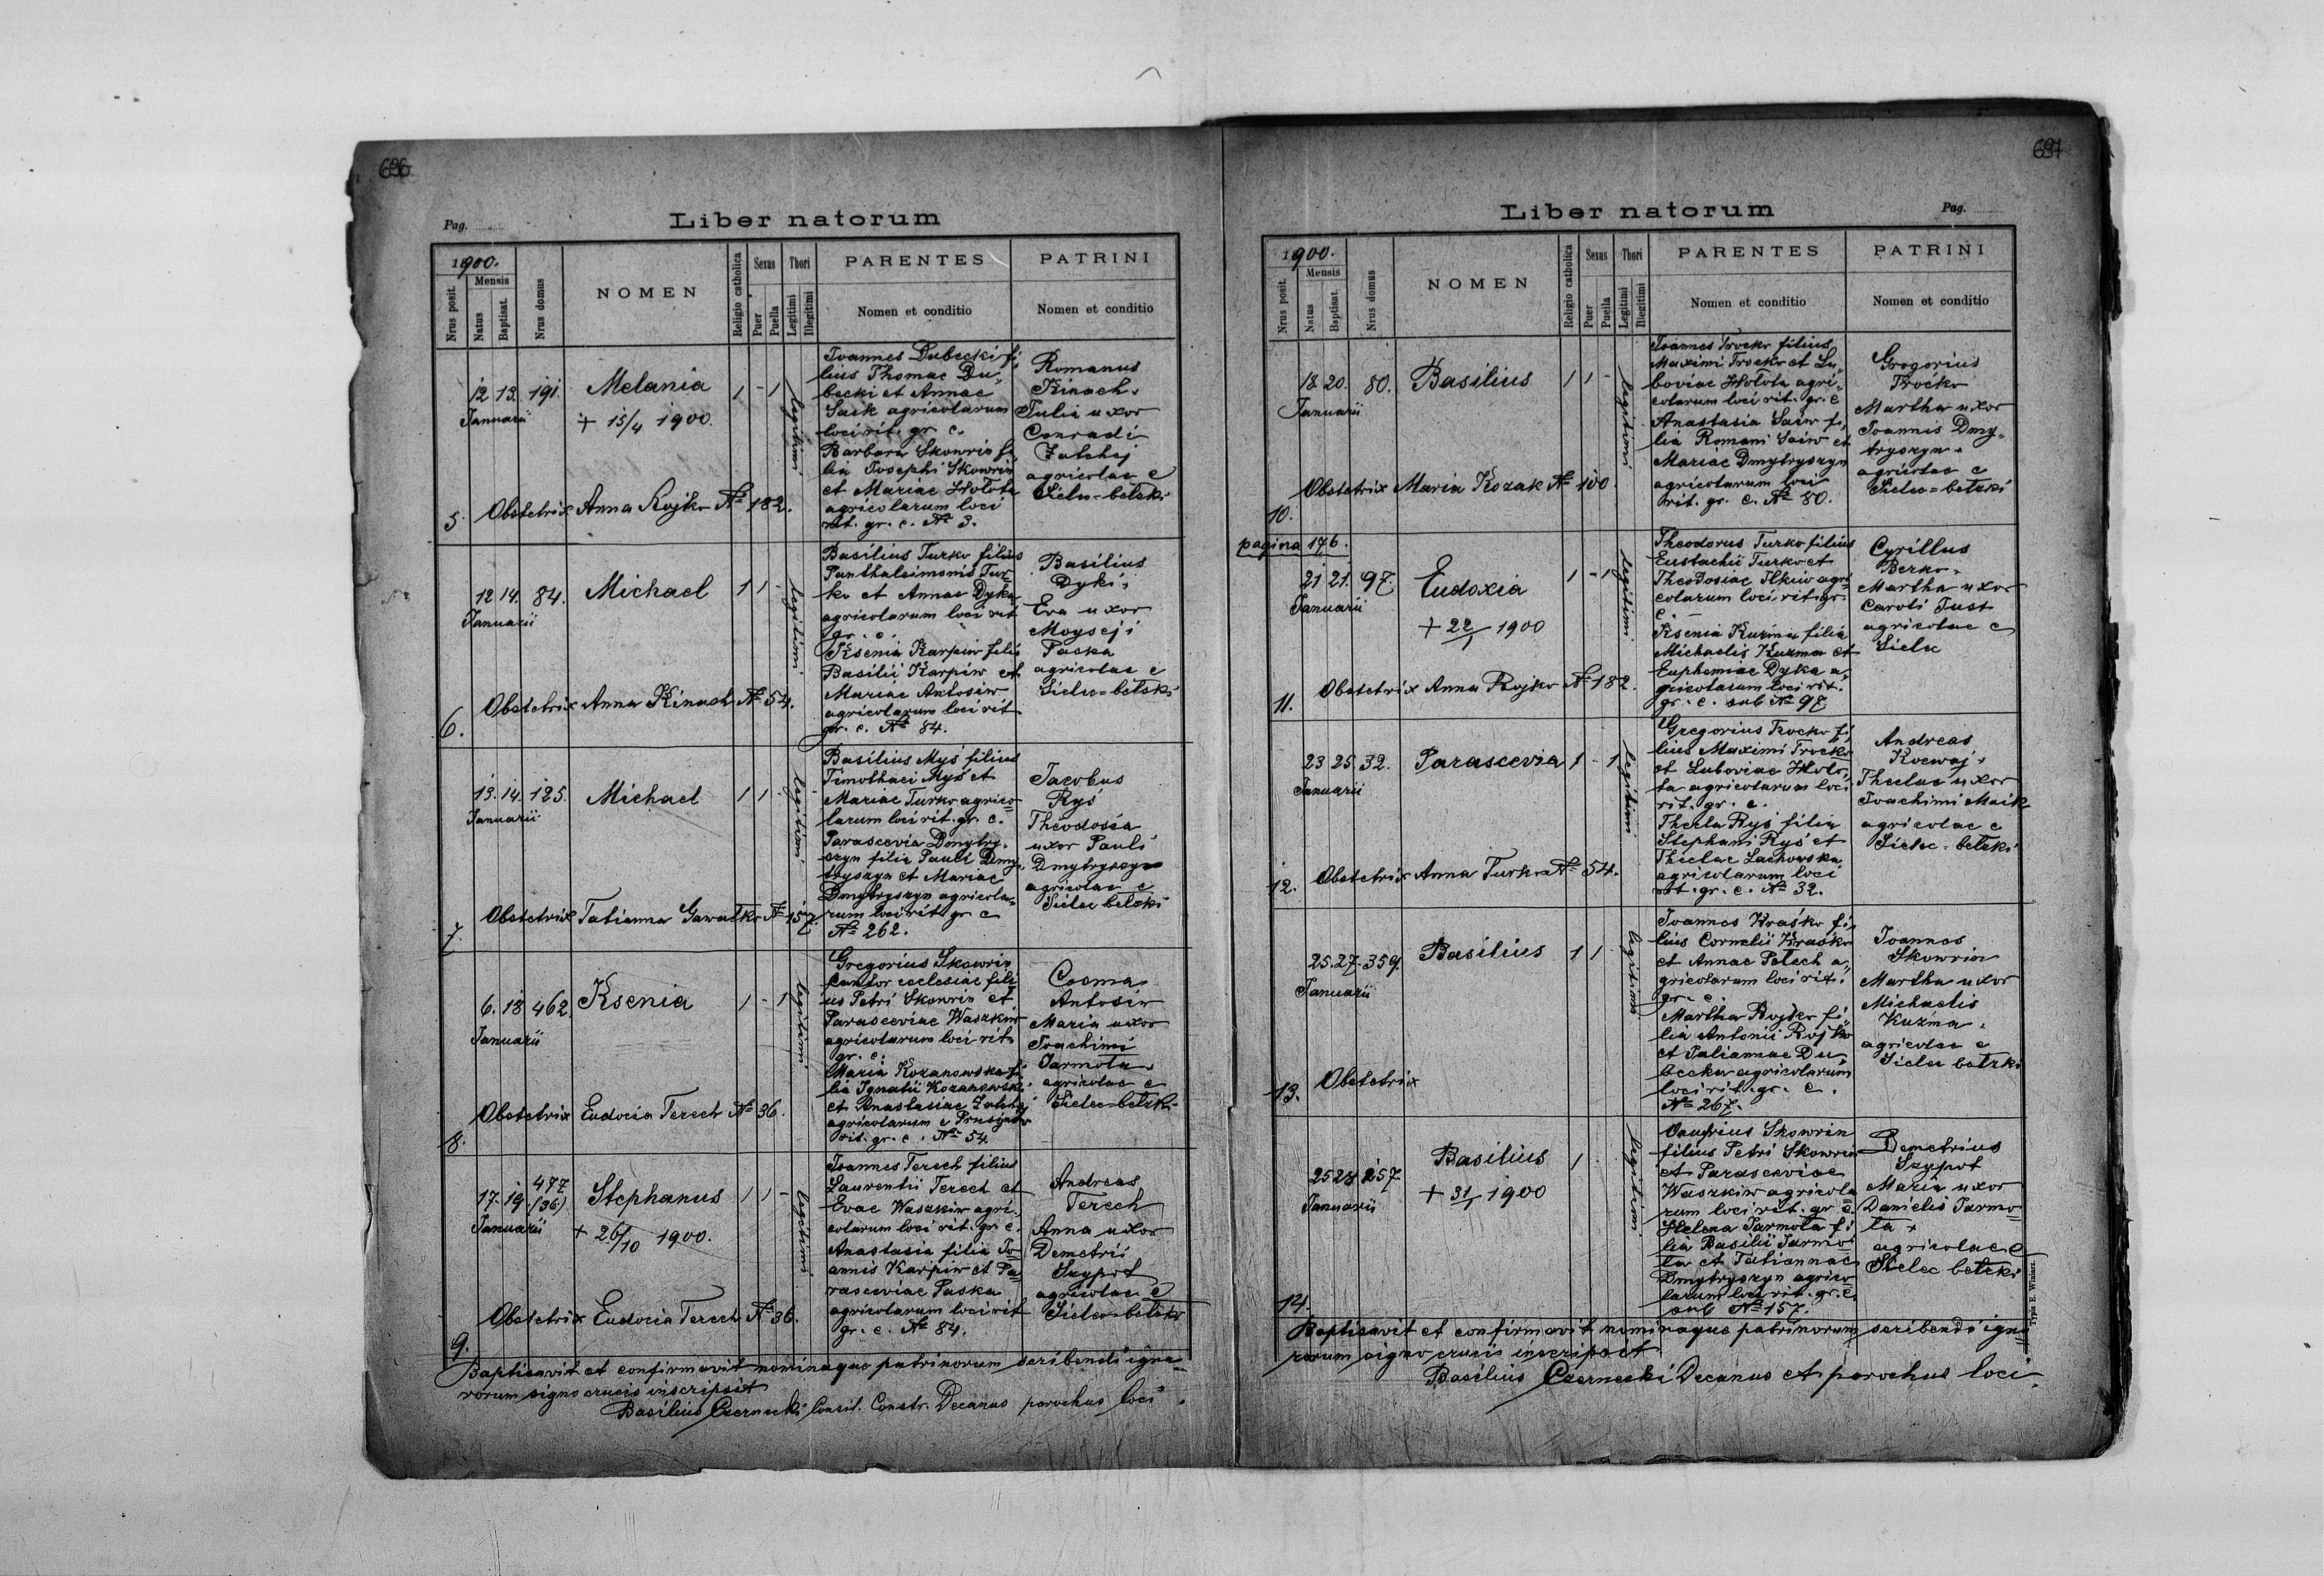 696
Pag.
Liber natorum
1900.
Mensis
Nrus posit.
Natus
Baptisat.
Nrus domus
NOMEN
Religio catholica
Sexus
Puer
Puella
Thori
Legitimi
Illegitimi
PARENTES
Nomen et conditio
PATRINI
Nomen et conditio
5.
12 13. 191.
Januarii
Melania
+ 15/4 1900.
1 - 1
legitimi
Joannes Dubecki fi„
lius Thomae Du„
becki et Annae
Saik agricolarum
loci rit. gr. c.
Barbara Skowrin fi„
lia Josephi Skowrin
et Mariae Hołota
agricolarum loci
rit. gr. c. № 3.
Romanus
Kinach.
Julia uxor
Conradi
Zatchej
agricolae e
Sielec-bełzki
Obstetrix Anna Rojko № 182.
6.
12 14. 84.
Januarii
Michael
1 1 -
legitimi
Basilius Turko filius
Panthaleimonis Tur„
ko et Annae Dyka
agricolarum loci rit
gr. c.
Ksenia Karpiw filia
Basilii Karpiw et
Mariae Antosiw
agricolarum loci rit
gr. c. № 84.
Basilius
Dyki.
Eva uxor
Moyseji
Paska
agricolae e
Sielec-bełski
Obstetrix Anna Kinach № 54.
7.
13. 14. 125.
Januarii
Michael
1 1
legitimi
Basilius Myś filius
Timothaei Myś et
Mariae Turko agrico„
larum loci rit. gr. c.
Parascevia Dmytry„
szyn filia Pauli Dmy„
tryszyn et Mariae
Dmytryszyn agricola„
rum loci rit. gr. c
№ 262.
Jacobus
Ryś
Theodosia
uxor Pauli
Dmytryszyn
agricolae e
Sielec bełzki
Obstetrix Tatianna Gawałko № 157
8.
6. 18 462.
Januarii
Ksenia
1 - 1
legitimi
Gregorius Skowrin
Cantor ecclesiae fili
us Petri Skowrin et
Parasceviae Waszkiw
agricolarum loci rit.
gr. c.
Maria Kozanowska fi„
lia Ignatii Kozanowski
et Anastasiae Zatchej
agricolarum e Prusinow
rit. gr. c. № 54.
Cosma
Antosiw
Maria uxor
Joachimi
Jarmota.
agricolae e
Sielec-bełzki
Obstetrix Eudocia Terech № 36.
9.
17. 19. 477
(36)
Januarii
Stephanus
+ 26/10 1900.
1 1 -
legitimi
Joannes Terech filius
Laurentii Terech et
Evae Waszkiw agri„
colarum loci rit. gr c.
Anastasia filia Jo„
annis Karpiw et Pa„
rasceviae Paska
agricolarum loci rit
gr. c. № 84.
Andreas
Terech
Anna uxor
Demetrii
Szypot
agricolae e
Sielec-bełzki
Obstetrix Eudocia Terech № 36.
Baptisavit et confirmavit nominaque patrinorum scribendi igna„
rorum signo crucis inscripsit
Basilius Czernecki Consil. Constr. Decanus parochus loci.
697
Liber natorum
Pag.
1900.
Mensis
Nrus posit.
Natus
Baptisat.
Nrus domus
NOMEN
Religio catholica
Sexus
Puer
Puella
Thori
Legitimi
Illegitimi
PARENTES
Nomen et conditio
PATRINI
Nomen et conditio
10.
18 20. 80.
Januarii
Basilius
1 1 -
legitimi
Joannes Troćko filius
Maximi Troćko et Lu„
boviae Hołota agri„
colarum loci rit. gr. c
Anastasia Saiw fi„
lia Romani Saiw et
Mariae Dmytryszyn
agricolarum loci
rit. gr. c. № 80.
Gregorius
Troćko
Martha uxor
Joannis Dmy„
tryszyn.
agricolae e
Sielec-bełzki
Obstetrix Maria Kozak № 100.
pagina 176.
11.
21 21. 97
Januarii
Eudoxia
+ 22/1 1900
1 - 1
legitimi
Theodorus Turko filius
Eustachii Turko et
Theodosiae Ilkiw agri„
colarum loci rit. gr.
c.
Ksenia Kuzma filia
Michaelis Kuzma et
Euphemiae Dyka a„
gricolarum loci rit.
gr. c. sub № 97
Cyrillus
Berko.
Martha uxor
Caroli Just
agricolae e
Sielec
Obstetrix Anna Rojko № 182.
12.
23 25. 32.
Januarii
Parascevia
1 - 1
legitimi
Gregorius Trocko fi„
lius Maximi Trocko
et Luboviae Holo„
ta agricolarum loci
rit. gr. c.
Thecla Ryś filia
Stephani Ryś et
Theclae Lachowska
agricolarum loci
rit. gr. c. № 32.
Andreas
Kocwaj.
Theclae uxor
Joachimi Maik
agricolae e
Sielec-bełzki
Obstetrix Anna Turko № 54.
13.
25. 27. 359.
Januarii
Basilius
1 1
legitimi
Joannes Hraśko fi„
lius Cornelii Hraśko
et Annae Petech a„
gricolarum loci rit.
gr. c.
Martha Rojko fi„
lia Antonii Rojko
et Taliannae Du„
becka agricolarum
loci rit. gr. c.
№ 267.
Joannes
Skowrin
Martha uxor
Michaelis
Kuźma.
agricolae e
Sielec bełzki
Obstetrix
14.
25 28 157.
Januarii
Basilius
+ 31/1 1900
1
legitimi
Onufrius Skowrin
filius Petri Skowrin
et Parasceviae
Waszkiw agricola„
rum loci rit. gr c.
Helena Jarmota fi„
lia Basilii Jarmo„
ta et Tatiannae
Dmytryszyn agrico„
larum loci rit. gr. c.
sub № 157.
Demetrius
Szypot
Maria uxor
Danielis Jarmo„
ta.
agricolae e
Sielec bełzki
Typis E. Winiarz.
Baptisavit et confirmavit nominaque patrinorum scribendi igna„
rorum signo crucis inscripsit
Basilius Czernecki Decanus et parochus loci.